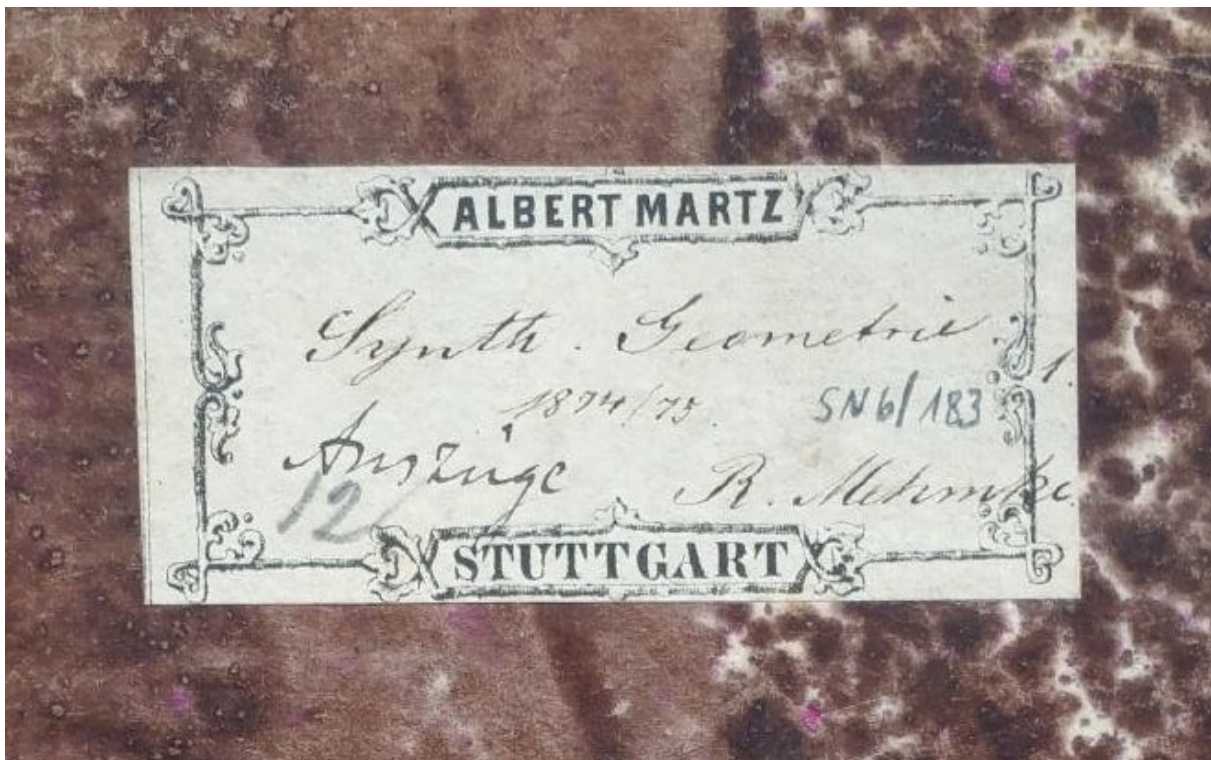 ALBERT MARTZ
Synth. Geometrie
1.
1874/75.
SN6/183
Auszüge
R. Mehmke.
12
STUTTGART